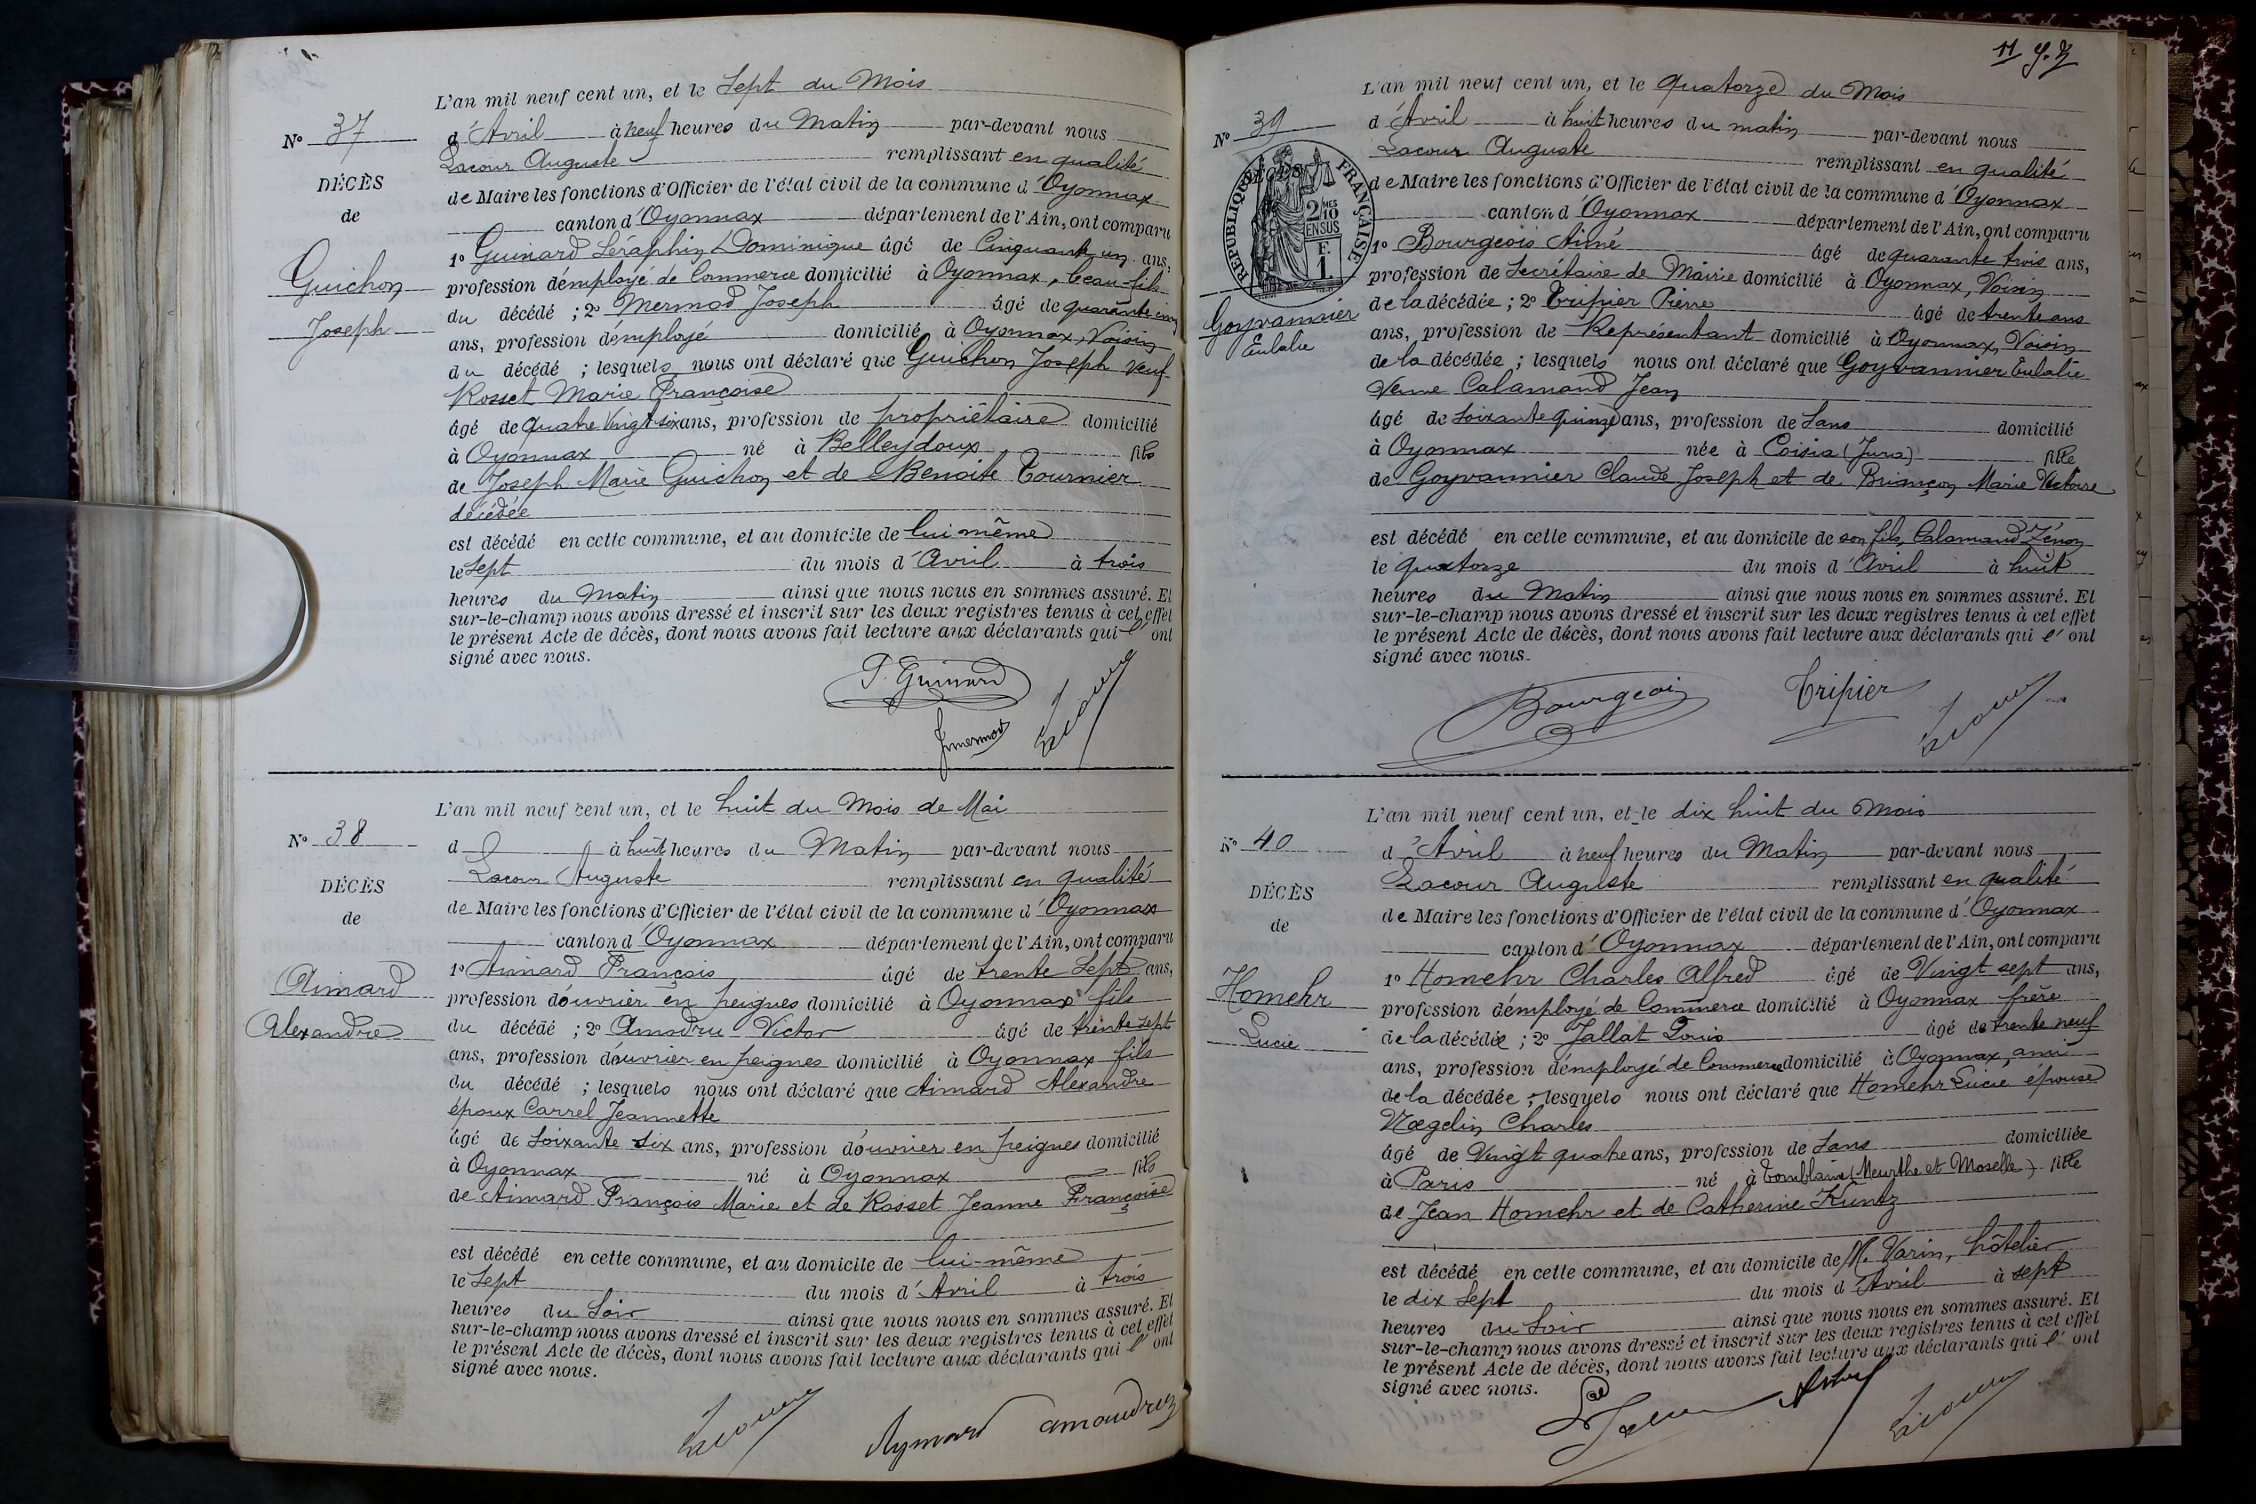 L'an mil neuf cent un, et le Sept du Mois
N° 37
d'Avril à neuf heures du Matin par-devant nous
Lacour Auguste remplissant en qualité
DÉCÈS
de Maire les fonctions d'Officier de l'état civil de la commune d'Oyonnax
de
canton d'Oyonnax département de l'Ain, ont comparu
1° Guinard Séraphin Dominique âgé de Cinquante un ans,
Guichon
profession d'employé de Commerce domicilié à Oyonnax, beau-fils
du décédé ; 2° Mermod Joseph âgé de quarante cinq
Joseph
ans, profession d'employé domicilié à Oyonnax, Voisin
du décédé ; lesquels nous ont déclaré que Guichon Joseph veuf
Rosset Marie Françoise
âgé de quatre Vingt six ans, profession de propriétaire domicilié
à Oyonnax né à Belleydoux fils
de Joseph Marie Guichon et de Benoite Tournier
décédée
est décédé en cette commune, et au domicile de lui même
le Sept du mois d'Avril à trois
heures du Matin ainsi que nous nous en sommes assuré. Et
sur-le-champ nous avons dressé et inscrit sur les deux registres tenus à cet effet
le présent Acte de décès, dont nous avons fait lecture aux déclarants qui l'ont
signé avec nous.
Guinard
Jmermod Lacour
L'an mil neuf cent un, et le huit du Mois de Mai
N° 38
d à huit heures du Matin par-devant nous
Lacour Auguste remplissant en qualité
DÉCÈS
de Maire les fonctions d'Officier de l'état civil de la commune d'Oyonnax
de
canton d'Oyonnax département de l'Ain, ont comparu
1° Aimard François âgé de trente Sept ans,
Aimard
profession d'ouvrier en peignes domicilié à Oyonnax fils
Alexandre
du décédé ; 2° Amodru Victor âgé de trente sept
ans, profession d'ouvrier en peignes domicilié à Oyonnax fils
du décédé ; lesquels nous ont déclaré que Aimard Alexandre
époux Carrel Jeannette
âgé de Soixante Six ans, profession d'ouvrier en peignes domicilié
à Oyonnax né à Oyonnax fils
de Aimard François Marie et de Rosset Jeanne Françoise
est décédé en cette commune, et au domicile de lui-même
le Sept du mois d'Avril à trois
heures du Soir ainsi que nous nous en sommes assuré. Et
sur-le-champ nous avons dressé et inscrit sur les deux registres tenus à cet effet
le présent Acte de décès, dont nous avons fait lecture aux déclarants qui l'ont
signé avec nous.
Lacour Aymard amoudruz
11
L'an mil neuf cent un, et le quatorze du Mois
N° 39
d'Avril à huit heures du matin par-devant nous
Lacour Auguste remplissant en qualité
RÉPUBLIQUE FRANÇAISE
2/10 MES EN SUS
F. 1.
de Maire les fonctions d'Officier de l'état civil de la commune d'Oyonnax
canton d'Oyonnax département de l'Ain, ont comparu
1° Bourgeois Aimé âgé de quarante trois ans,
profession de Secrétaire de Mairie domicilié à Oyonnax, Voisin
Goyvannier
Eulalie
de la décédée ; 2° Tripier Pierre âgé de trente ans
ans, profession de Représentant domicilié à Oyonnax, Voisin
de la décédée ; lesquels nous ont déclaré que Goyvannier Eulalie
Veuve Calamand Jean
âgé de Soixante quinze ans, profession de Sans domicilié
à Oyonnax née à Coisia (Jura) fille
de Goyvannier Claude Joseph et de Briançon Marie Victoire
est décédé en cette commune, et au domicile de son fils, Calamand Zénon
le quatorze du mois d'Avril à huit
heures du Matin ainsi que nous nous en sommes assuré. Et
sur-le-champ nous avons dressé et inscrit sur les deux registres tenus à cet effet
le présent Acte de décès, dont nous avons fait lecture aux déclarants qui l'ont
signé avec nous.
Bourgeois Tripier Lacour
L'an mil neuf cent un, et le dix huit du Mois
N° 40
d'Avril à neuf heures du Matin par-devant nous
Lacour Auguste remplissant en qualité
DÉCÈS
de Maire les fonctions d'Officier de l'état civil de la commune d'Oyonnax
de
canton d'Oyonnax département de l'Ain, ont comparu
1° Homehr Charles Alfred âgé de Vingt sept ans,
Homehr
profession d'employé de Commerce domicilié à Oyonnax frère
Lucie
de la décédée ; 2° Jallat Louis âgé de trente neuf
ans, profession d'employé de Commerce domicilié à Oyonnax, ami
de la décédée ; lesquels nous ont déclaré que Homehr Lucie épouse
Nægelin Charles
âgé de Vingt quatre ans, profession de Sans domiciliée
à Paris né à Tomblaine (Meurthe et Moselle) fille
de Jean Homehr et de Catherine Kuntz
est décédé en cette commune, et au domicile de M. Varin, hôtelier
le dix Sept du mois d'Avril à sept
heures du Soir ainsi que nous nous en sommes assuré. Et
sur-le-champ nous avons dressé et inscrit sur les deux registres tenus à cet effet
le présent Acte de décès, dont nous avons fait lecture aux déclarants qui l'ont
signé avec nous.
Lacour